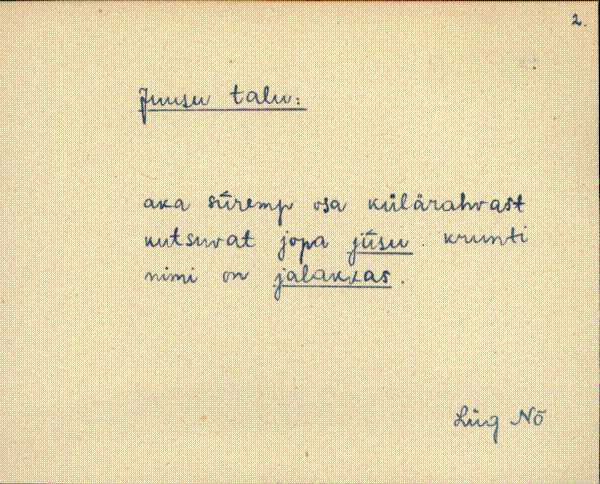 2.
Juusu talu:
aka sūremp osa külärahvast
kutsuvat jopa jūsu. krunti
nimi on jalakkas.
Lüg Nõ